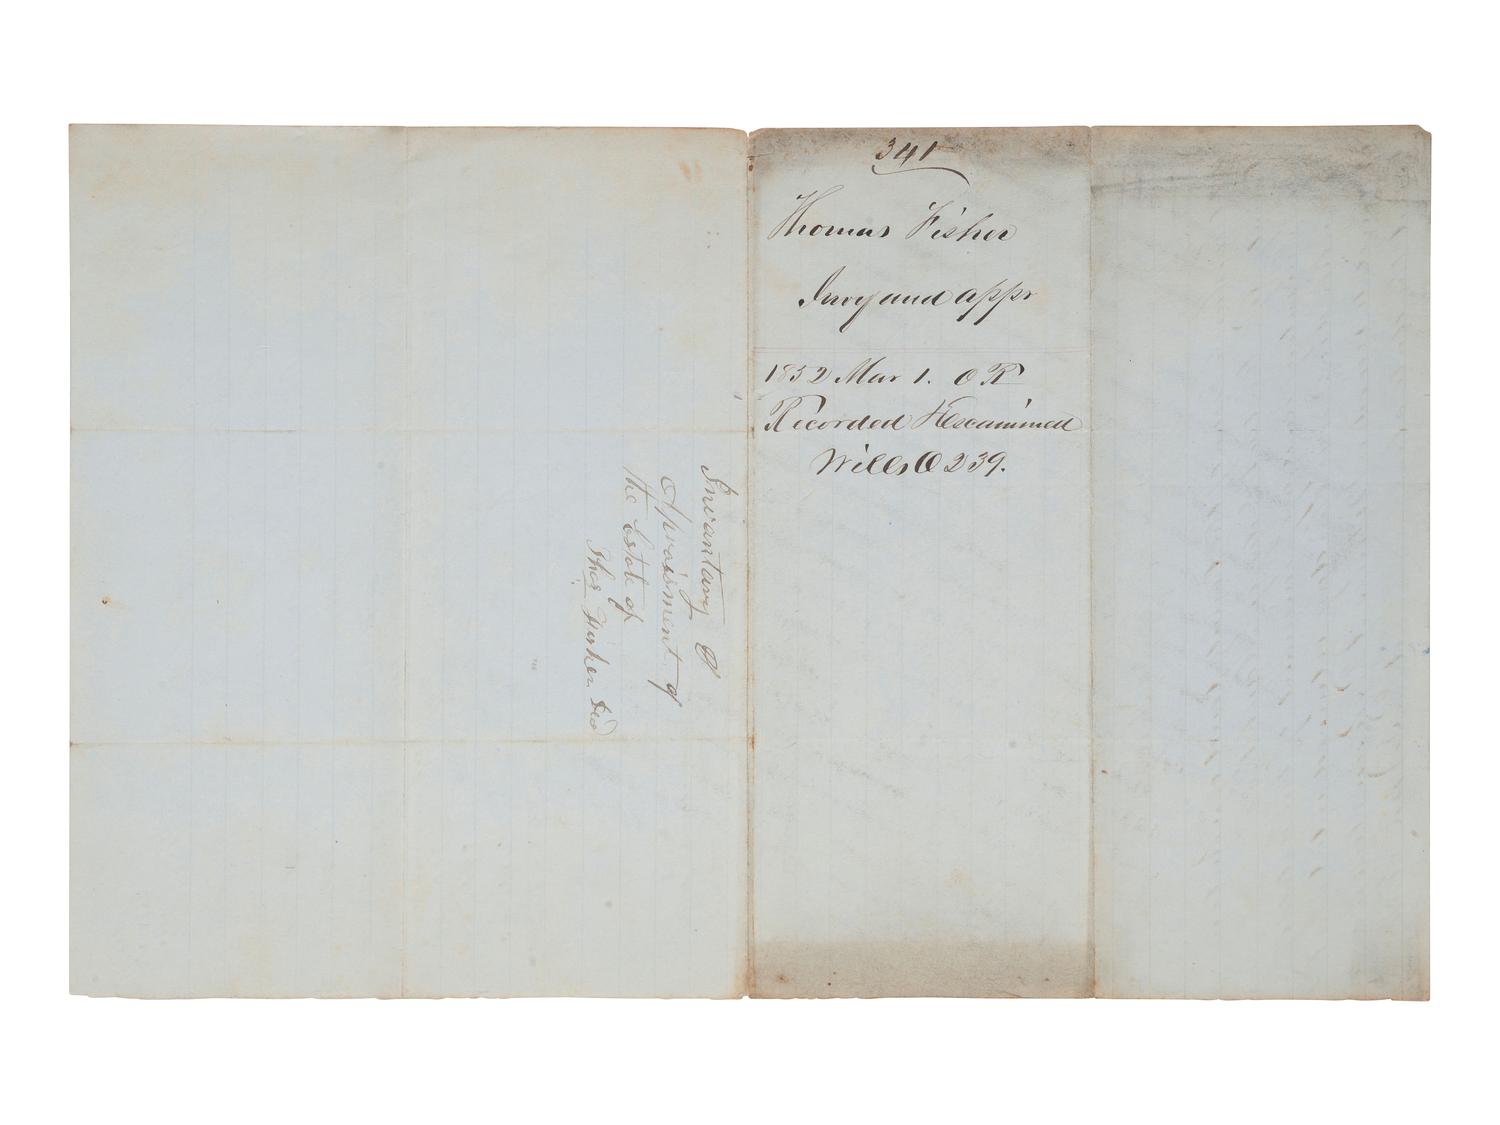 341
Thomas Fisher
Invy and appr
1852 Mar 1. O R
Recorded & Examined
Wills O 239.
Invantary &
Apraisment of
the Estate of
Thos Fisher Decd